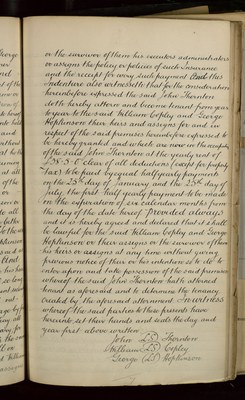 or the survivor of them his executors administrators
or assigns the policy or policies of such Insurance
and the receipt for every such payment And this
Indenture also witnesseth that for the consideration
hereinbefore expressed the said John Thornton
doth hereby attorn and become tenant from year
to year to the said William Copley and George
Hopkinson their heirs and assigns for and in
respect of the said premises hereinbefore expressed to
be hereby granted and which are now in the occupation
of the said John Thornton at the yearly rent of
£38.5.0 clear of all deductions (except for property
Tax) to be paid by equal half yearly payments
on the 25th day of January and the 25th day of
July, the first half yearly payment to be made
on the expiration of six calendar months from
the day of the date hereof Provided always
and it is hereby agreed and declared that it shall
be lawful for the said William Copley and George
Hopkinson or their assigns or the survivor of them
his heirs or assigns at any time without giving
previous notice of their or his intention so to do to
enter upon and take possession of the said premises
whereof the said John Thornton hath attorned
tenant as aforesaid and to determine the tenancy
created by the aforesaid attornment In witness
whereof the said parties to these presents have
hereunto set their hands and seals the day and
year first above written
John LS Thornton
William LS Copley
George LS Hopkinson